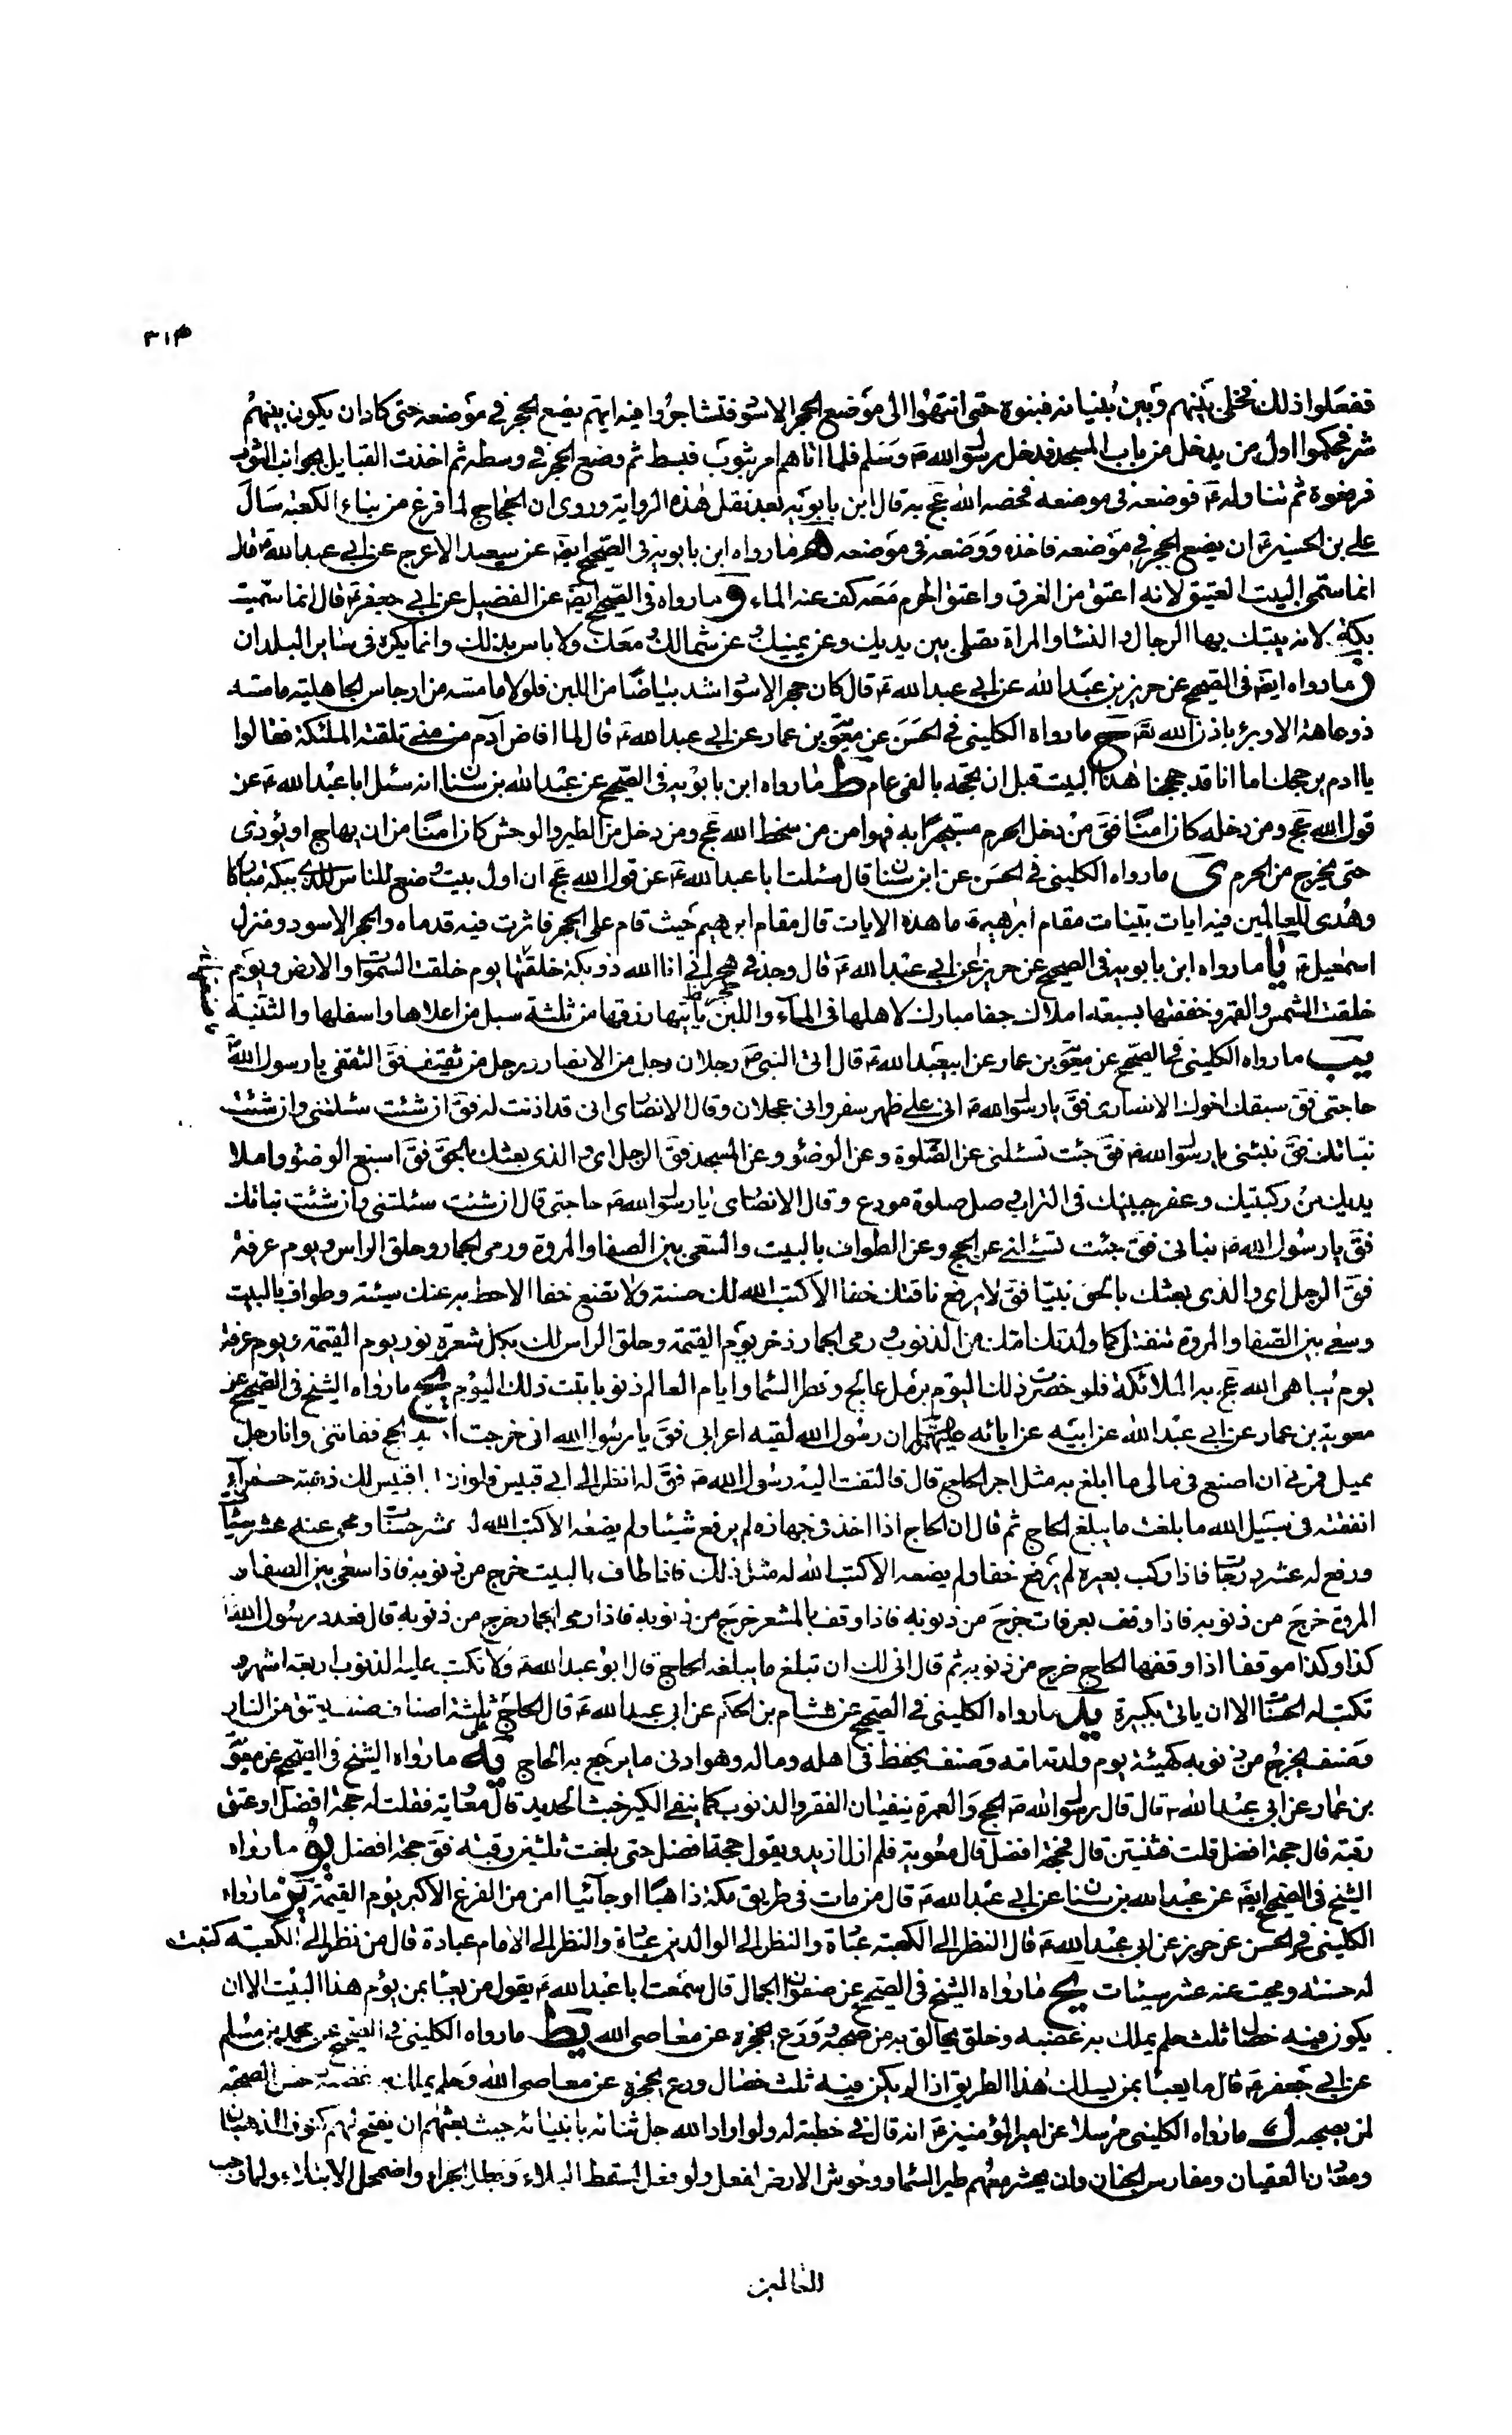 ٣١٣
ففعلوا ذلك فخلى بينهم وبين بنيانه فبنوه حتى انتهوا الى موضع الحجر الاسود فتشاجروا فيه ايهم يضع الحجر في موضعه حتى كاد ان يكون بينهم
شر فحكموا اول من يدخل من باب المسجد فدخل رسول الله ص وسلم فلما اتاهم امر بثوب فبسط ثم وضع الحجر في وسطه ثم اخذت القبايل بجوانب الثوب
فرفعوه ثم تناوله ع فوضعه في موضعه فخصه الله عج به قال ابن بابويه بعد نقل هذه الرواية وروى ان الحجاج لما فرغ من بناء الكعبة سال
على بن الحسين ع ان يضع الحجر في موضعه فاخذه ووضعه في موضعه ه ما رواه ابن بابويه في الصحيح ايضا عن سعيد الاعرج عن ابي عبد الله ع قال
انما سمى البيت العتيق لانه اعتق من الغرق واعتق الحرم معه كف عنه الماء و ما رواه في الصحيح ايضا عن الفضيل عن ابي جعفر ع قال انما سميت
بكة لانه يبتك بها الرجال والنساء والمراة تصلى بين يديك وعن يمينك وعن شمالك ومعك ولا باس بذلك وانما يكره في ساير البلدان
ز ما رواه ايضا في الصحيح عن حريز بن عبد الله عن ابي عبد الله ع قال كان حجر الاسود اشد بياضا من اللبن فلولا ما مسه من ارجاس الجاهلية ما مسه
ذو عاهة الا وبرئ باذن الله تع ح ما رواه الكليني في الحسن عن معوية بن عمار عن ابي عبد الله ع قال لما افاض آدم من منى تلقته الملئكة فقالوا
يا ادم بر حجك اما انا قد حججنا هذا البيت قبل ان تحجه بالفى عام ط ما رواه ابن بابويه في الصحيح عن عبد الله بن سنان انه سئل ابا عبد الله ع عن
قول الله عج ومن دخله كان امنا فق من دخل الحرم مستجيرا به فهو امن من سخط الله عج ومن دخل من الطير والوحش كان امنا من ان يهاج او يؤذى
حتى يخرج من الحرم ى ما رواه الكليني في الحسن عن ابن سنان قال سئلت ابا عبد الله ع عن قول الله عج ان اول بيت وضع للناس للذى ببكة مباركا
وهدى للعالمين فيه ايات بينات مقام ابرهيم ع ما هذه الايات قال مقام ابرهيم حيث قام على الحجر فاثرت فيه قدماه والحجر الاسود ومنزل
اسمعيل ع يا ما رواه ابن بابويه في الصحيح عن حريز عن ابي عبد الله ع قال وجد في حجر انى انا الله ذو بكة خلقتها يوم خلقت السموات والارض ويوم
خلقت الشمس والقمر وخففتها بسبعة املاك حفا مبارك لاهلها في الماء واللبن ياتيها رزقها من ثلثة سبل من اعلاها واسفلها والثنية
يب ما رواه الكليني في الصحيح عن معوية بن عمار عن ابيعبد الله ع قال اتى النبي ص رجلان رجل من الانصار ورجل من ثقيف فق الثقفى يا رسول الله
حاجتى فق سبقك اخوك الانصارى فق يا رسول الله ص انى على ظهر سفر وانى عجلان وقال الانصارى انى قد اذنت له فق ان شئت سئلتنى وان شئت
نباتك فق نبئنى يا رسول الله ص فق جئت تسئلنى عن الصلوة وعن الوضوء وعن المسجد فق الرجل اى والذى بعثك بالحق فق اسبغ الوضوء واملا
يديك من ركبتيك وعفر جبينك في التراب وصل صلوة مودع وقال الانصارى يا رسول الله ص حاجتى قال ان شئت سئلتنى وان شئت نباتك
فق يا رسول الله ص نبانى فق جئت تسئلنى عن الحج وعن الطواف بالبيت والسعى بين الصفا والمروة ورمى الجمار وحلق الراس ويوم عرفة
فق الرجل اى والذى بعثك بالحق نبيا فق لا يرفع ناقتك خفا الا كتب الله لك حسنة ولا تضع خفا الا حط به عنك سيئة وطواف بالبيت
وسعى بين الصفا والمروة تنفتل كما ولدتك امك من الذنوب ورمى الجمار ذخر يوم القيمة وحلق الراس لك بكل شعرة نور يوم القيمة ويوم عرفة
يوم يباهى الله عج به الملائكة فلو حضرت ذلك اليوم برمل عالج وقطر السماء وايام العالم ذنوبا بتت ذلك اليوم يج ما رواه الشيخ في الصحيح عن
معوية بن عمار عن ابي عبد الله عن ابيه عن ابائه عليهم السلام ان رسول الله لقيه اعرابى فق يا رسول الله انى خرجت اريد الحج ففاتنى وانا رجل
مميل فمرنى ان اصنع في مالى ما ابلغ به مثل اجر الحاج قال فالتفت اليه رسول الله ص فق له انظر الى ابى قبيس فلو ان ابا قبيس لك ذهبة حمراء
انفقته في سبيل الله ما بلغت ما يبلغ الحاج ثم قال ان الحاج اذا اخذ في جهازه لم يرفع شيئا ولم يضعه الا كتب الله له عشر حسنات ومحى عنه عشر سيئات
ورفع له عشر درجات فاذا ركب بعيره لم يرفع خفا ولم يضعه الا كتب الله له مثل ذلك فاذا طاف بالبيت خرج من ذنوبه فاذا سعى بين الصفا و
المروة خرج من ذنوبه فاذا وقف بعرفات خرج من ذنوبه فاذا وقف بالمشعر خرج من ذنوبه فاذا رمى الجمار خرج من ذنوبه قال فعدد رسول الله
كذا وكذا موقفا اذا وقفها الحاج خرج من ذنوبه ثم قال انى لك ان تبلغ ما يبلغه الحاج قال ابو عبد الله ع ولا تكتب عليه الذنوب اربعة اشهر و
تكتب له الحسنات الا ان ياتى بكبيرة يد ما رواه الكليني في الصحيح عن هشام بن الحكم عن ابي عبد الله ع قال الحاج ثلثة اصناف صنف يعتق من النار
وصنف يخرج من ذنوبه كهيئة يوم ولدته امه وصنف يحفظ في اهله وماله وهو ادنى ما يرجع به الحاج يه ما رواه الشيخ في الصحيح عن معوية
بن عمار عن ابي عبد الله ع قال قال رسول الله ص الحج والعمرة ينفيان الفقر والذنوب كما ينفى الكير خبث الحديد قال معاية فقلت له حجة افضل او عتق
رقبة قال حجة افضل قلت فثنتين قال فحجة افضل قال معوية فلم ازل ازيد ويقول حجة افضل حتى بلغت ثلثين رقبة فق حجة افضل يو ما رواه
الشيخ في الصحيح ايضا عن عبد الله بن سنان عن ابي عبد الله ع قال من مات في طريق مكة ذاهبا او جائيا امن من الفزع الاكبر يوم القيمة يز ما رواه
الكليني في الحسن عن حريز عن ابي عبد الله ع قال النظر الى الكعبة عبادة والنظر الى الوالدين عبادة والنظر الى الامام عبادة قال من نظر الى الكعبة كتبت
له حسنة ومحيت عنه عشر سيئات يح ما رواه الشيخ في الصحيح عن صفوان الجمال قال سمعت ابا عبد الله ع يقول من يعبا بمن يؤم هذا البيت الا ان
يكون فيه خصال ثلث حلم يملك به غضبه وخلق يخالق به من صحبه وورع يحجزه عن معاصى الله يط ما رواه الكليني في الصحيح عن محمد بن مسلم
عن ابي جعفر ع قال ما يعبا بمن يسلك هذا الطريق اذا لم يكن فيه ثلث خصال ورع يحجزه عن معاصى الله وحلم يملك به غضبه وحسن الصحبة
لمن يصحبه ك ما رواه الكليني مرسلا عن امير المؤمنين ع انه قال في خطبة له ولو اراد الله جل ثنائه بانبيائه حيث بعثهم ان يفتح لهم كنوز الذهبان
ومعدن العقيان ومغارس الجنان وان يحشر معهم طير السماء ووحوش الارض لفعل ولو فعل لسقط البلاء وبطل الجزاء واضمحل الابتلاء ولما وجب
للقائلين